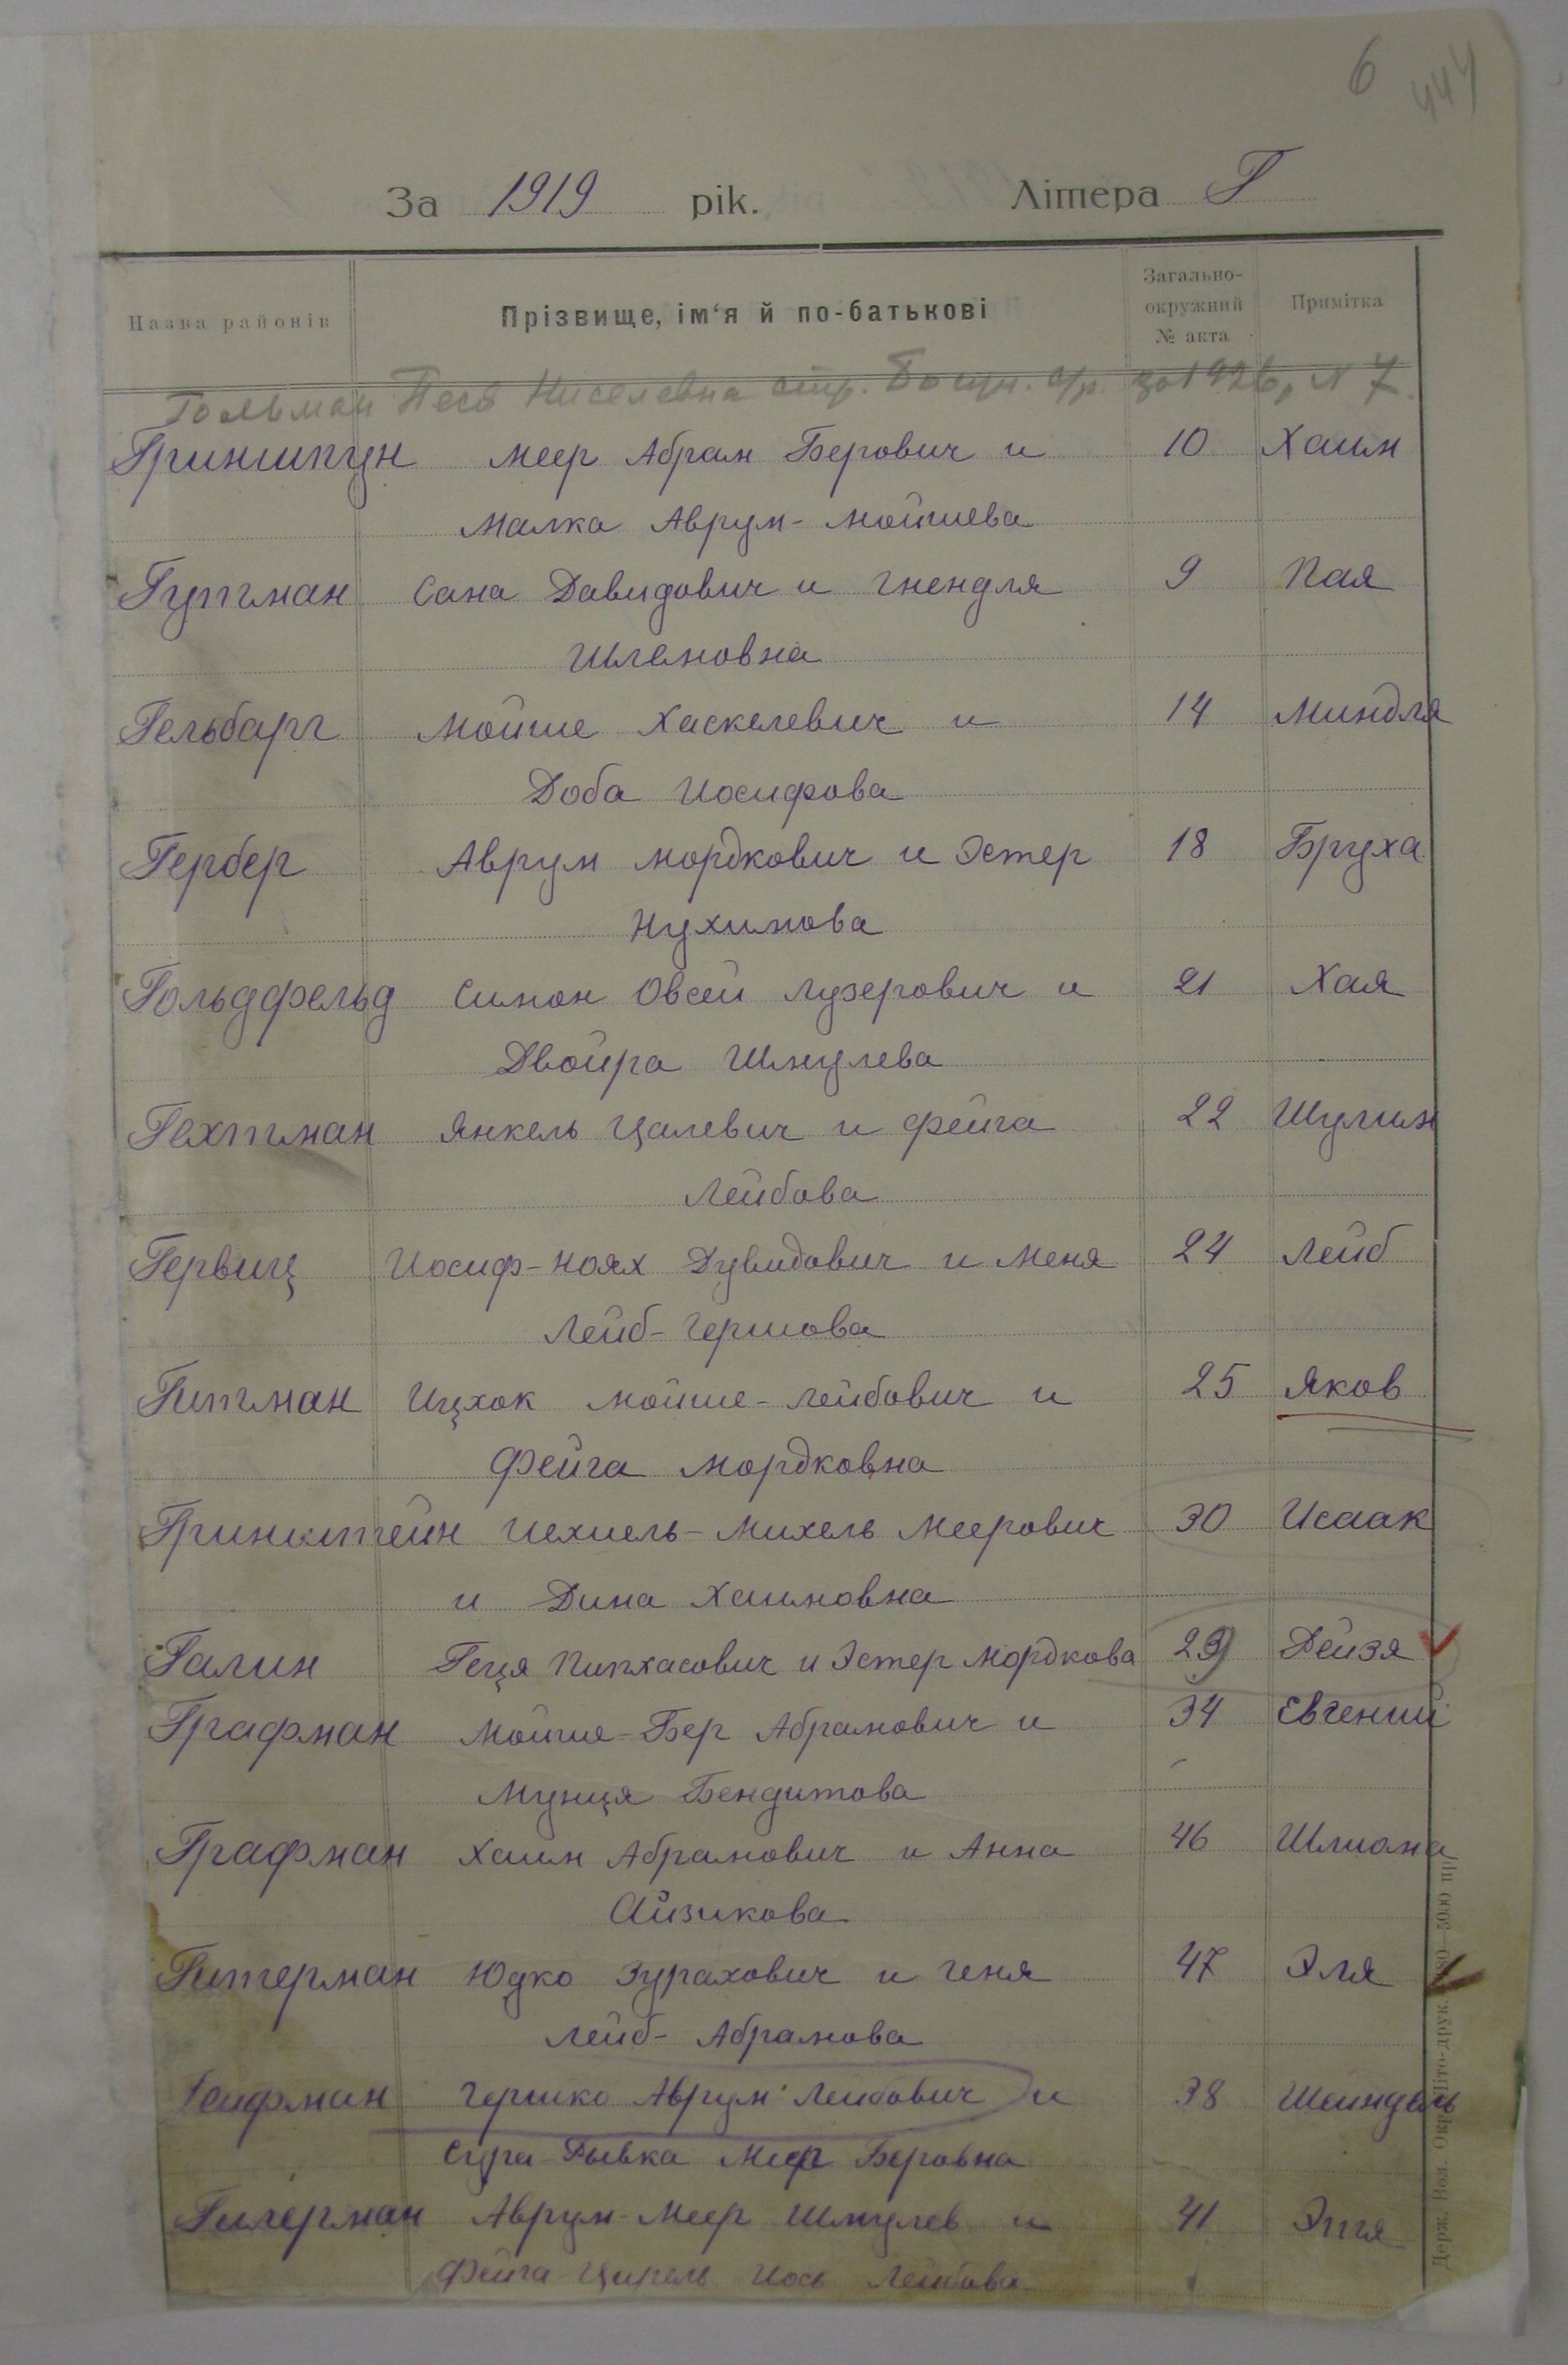 6 444
За 1919 рік. Літера Г
Назва районів Прізвище, ім'я й по-батькові Загально-окружний № акта Примітка
Гольман Песя Киселевна стр. за 1926, N 7.
Гриншпун Меер Абрам Берович и 10 Хаим
Малка Аврум-Мойшева
Гутман Сана Давидович и Гнендля 9 Пая
Шлемовна
Гельбарг Мойше Хаскелевич и 14 Миндля
Доба Иосифова
Гербер Аврум Мордкович и Эстер 18 Бруха
Нухимова
Гольдфельд Симон Овсей Лузерович и 21 Хая
Двойра Шмулева
Гехтман Янкель Цалевич и Фейга 22 Шулим
Лейбова
Гервиц Иосиф-Ноях Дувидович и Меня 24 Лейб
Лейб-Гершова
Гитман Ицхок Мойше-Лейбович и 25 Яков
Фейга Мордковна
Гринштейн Иехиель-Михель Меерович 30 Исаак
и Дина Хаимовна
Галин Геця Пинхасович и Эстер Мордкова 29 Рейзя
Графман Мойше-Бер Абрамович и 34 Евгений
Мунця Бендитова
Графман Хаим Абрамович и Анна 46 Шлиома
Айзикова
Гитерман Юдко Зурахович и Геня 47 Эля
Лейб-Абрамова
Гейфман Гершко Аврум Лейбович и 38 Шейндель
Сура-Рывка Меер Беровна
Гилерман Аврум-Меер Шмулев и 41 Эття
Фейга Цирель Иось Лейбова